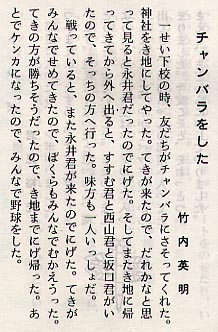 チャンバラをした
竹内英明
せい下校の時、友だちがチャンバラにさそってくれた。
神社をき地にしてやった。てきが来たので、だれかなと思
って見ると永井君だったのでにげた。そしてまたき地に帰
ってきてから外へ出ると、すすむ君と西山君と坂口君がい
たので、そっちの方へ行った。味方も一人いっしょだ。
戦っていると、また永井君が来たのでにげた。てきが
みんなでせめてきたので、ぼくらもみんなでむかえうった。
てきの方が勝ちそうだったので、き地までにげ帰った。あ
とでケンカになったので、みんなで野球をした。